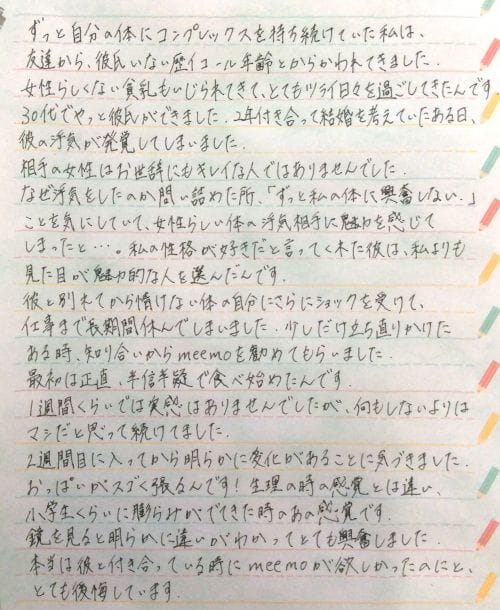 ずっと自分の体にコンプレックスを持ち続けていた私は、
友達から、彼氏いない歴イコール年齢とからかわれてきました.
女性らしくない貧乳もいじられてきて、とてもツライ日々を過ごしてきたんです.
30代でやっと彼氏ができました. 2年付き合って結婚を考えていたある日、
彼の浮気が発覚してしまいました.
相手の女性はお世辞にもキレイな人ではありませんでした.
なぜ浮気をしたのか問い詰めた所、「ずっと私の体に興奮しない.」
ことを気にしていて、女性らしい体の浮気相手に魅力を感じて
しまったと…。私の性格が好きだと言ってくれた彼は、私よりも
見た目が魅力的な人を選んだんです.
彼と別れてから情けない体の自分にさらにショックを受けて、
仕事まで長期間休んでしまいました. 少しだけ立ち直りかけた
ある時、知り合いからmeemoを勧めてもらいました.
最初は正直、半信半疑で食べ始めたんです.
1週間くらいでは実感はありませんでしたが、何もしないよりは
マシだと思って続けてました.
2週間目に入ってから明らかに変化があることに気づきました.
おっぱいがスゴく張るんです! 生理の時の感覚とは違い、
小学生くらいに膨らみができた時のあの感覚です.
鏡を見ると明らかに違いがわかってとても興奮しました.
本当は彼と付き合っている時にmeemoが欲しかったのにと、
とても後悔しています.